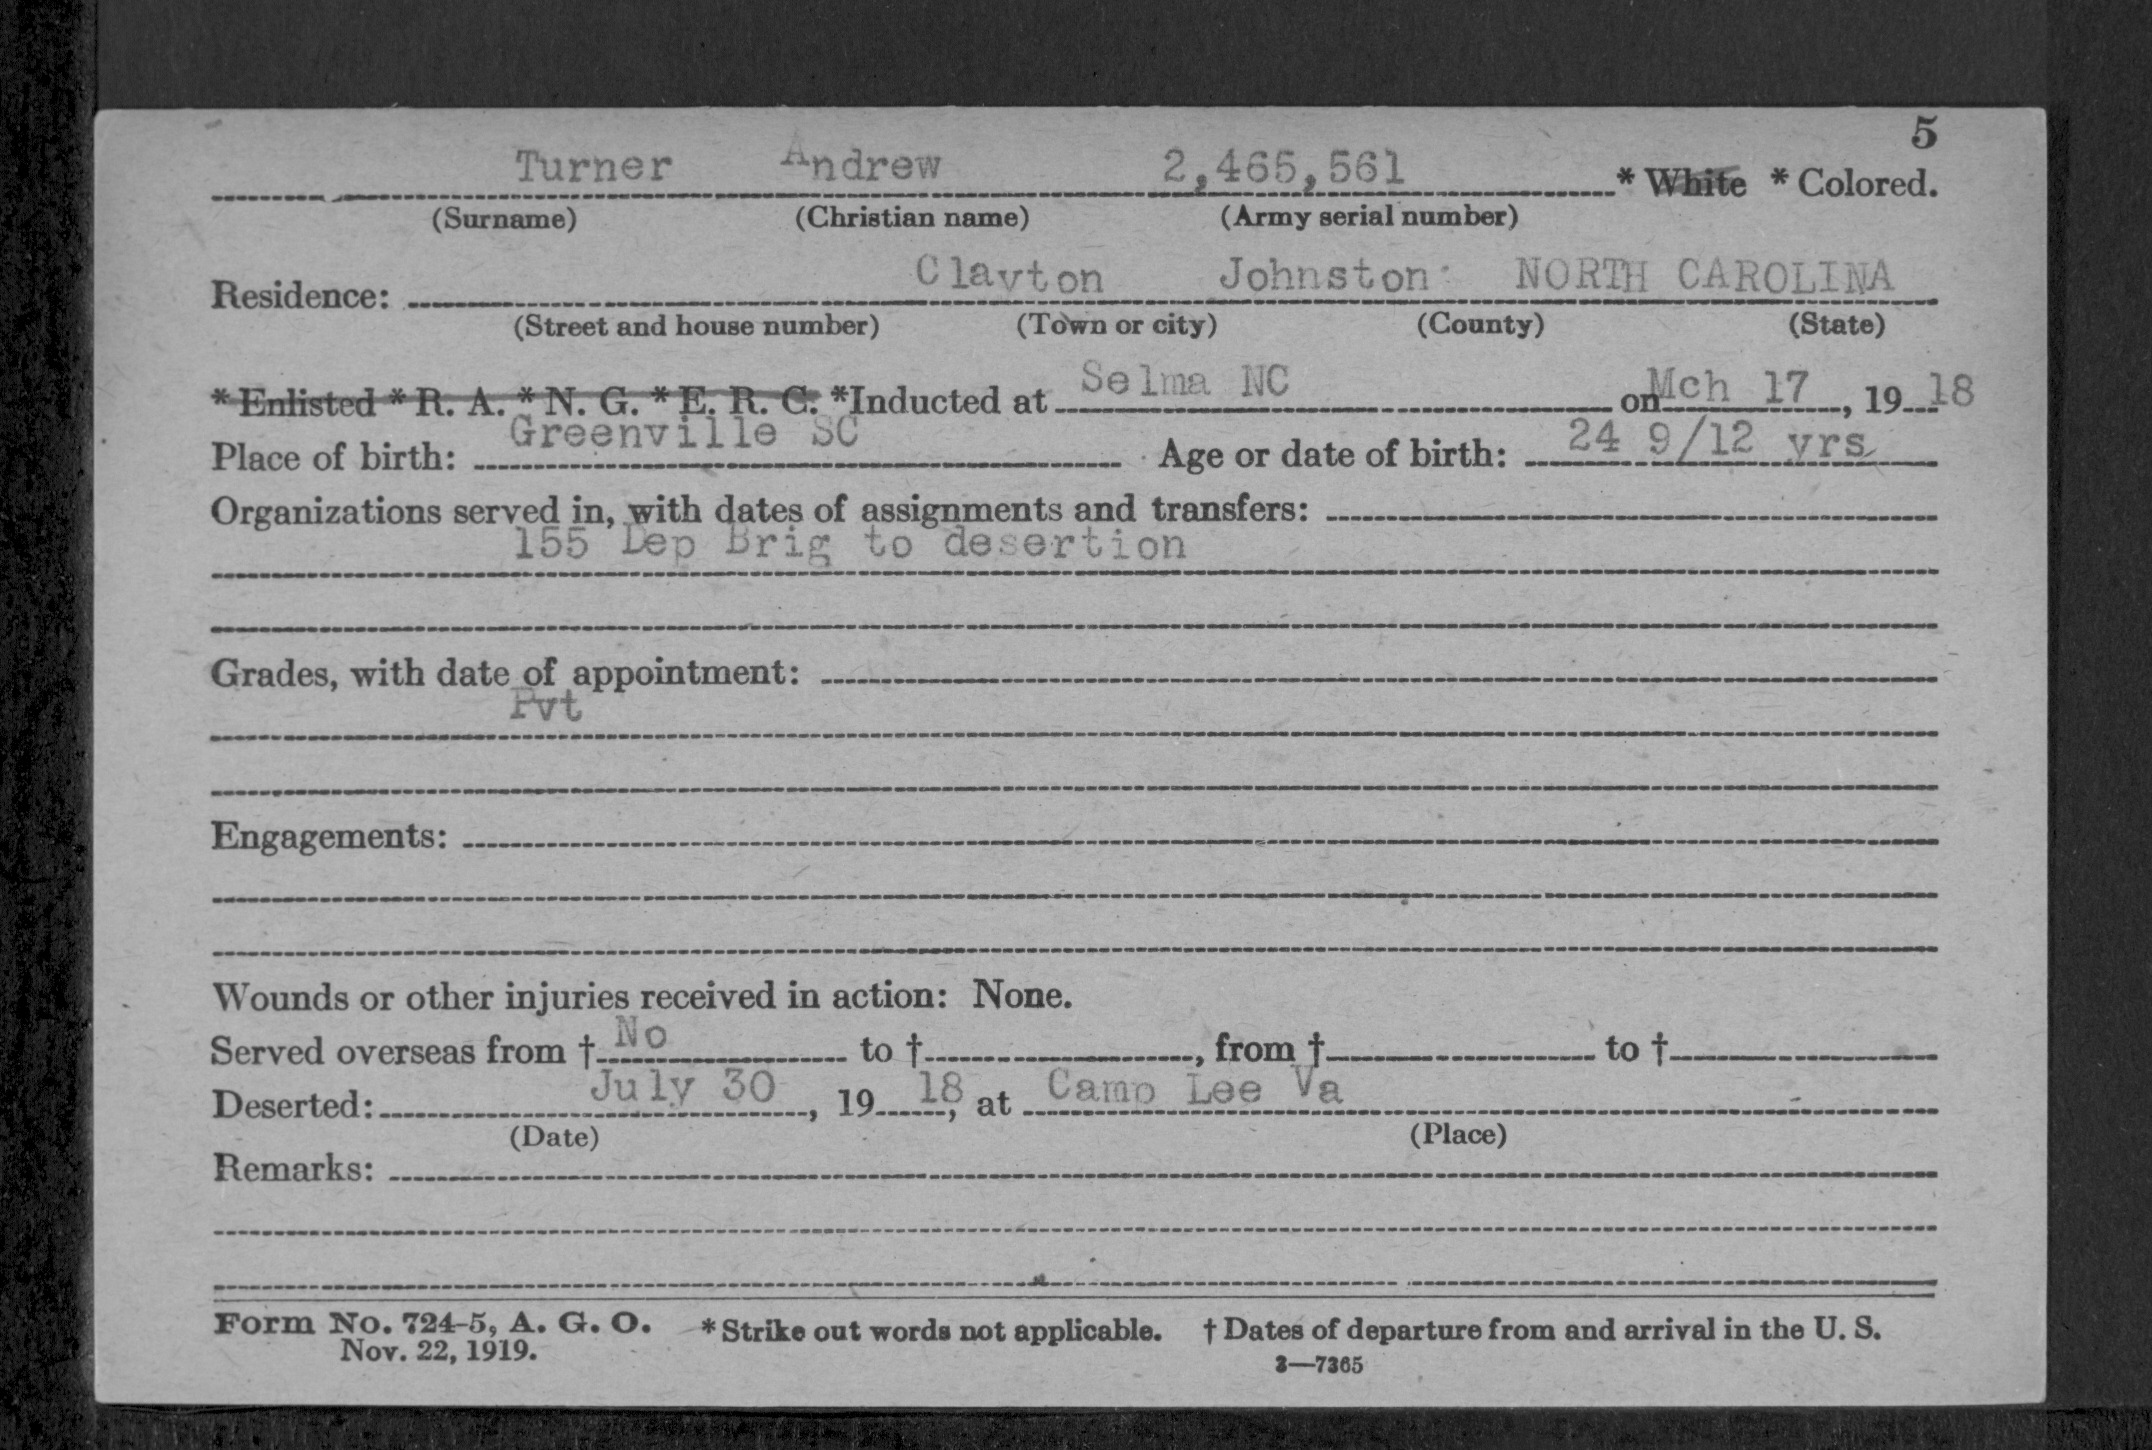 5
Turner Andrew 2,465,561 * White * Colored.
(Surname) (Christian name) (Army serial number)
Residence: Clayton Johnston NORTH CAROLINA
(Street and house number) (Town or city) (County) (State)
* Enlisted * R. A. * N. G. * E. R. C. *Inducted at Selma NC on Mch 17, 19 18
Place of birth: Greenville SC Age or date of birth: 24 9/12 yrs
Organizations served in, with dates of assignments and transfers:
155 Dep Brig to desertion
Grades, with date of appointment:
Pvt
Engagements:
Wounds or other injuries received in action: None.
Served overseas from † No to †, from † to †
Deserted: July 30, 19 18, at Camp Lee Va
(Date) (Place)
Remarks:
Form No. 724-5, A. G. O. * Strike out words not applicable. † Dates of departure from and arrival in the U. S.
Nov. 22, 1919. 3—7365